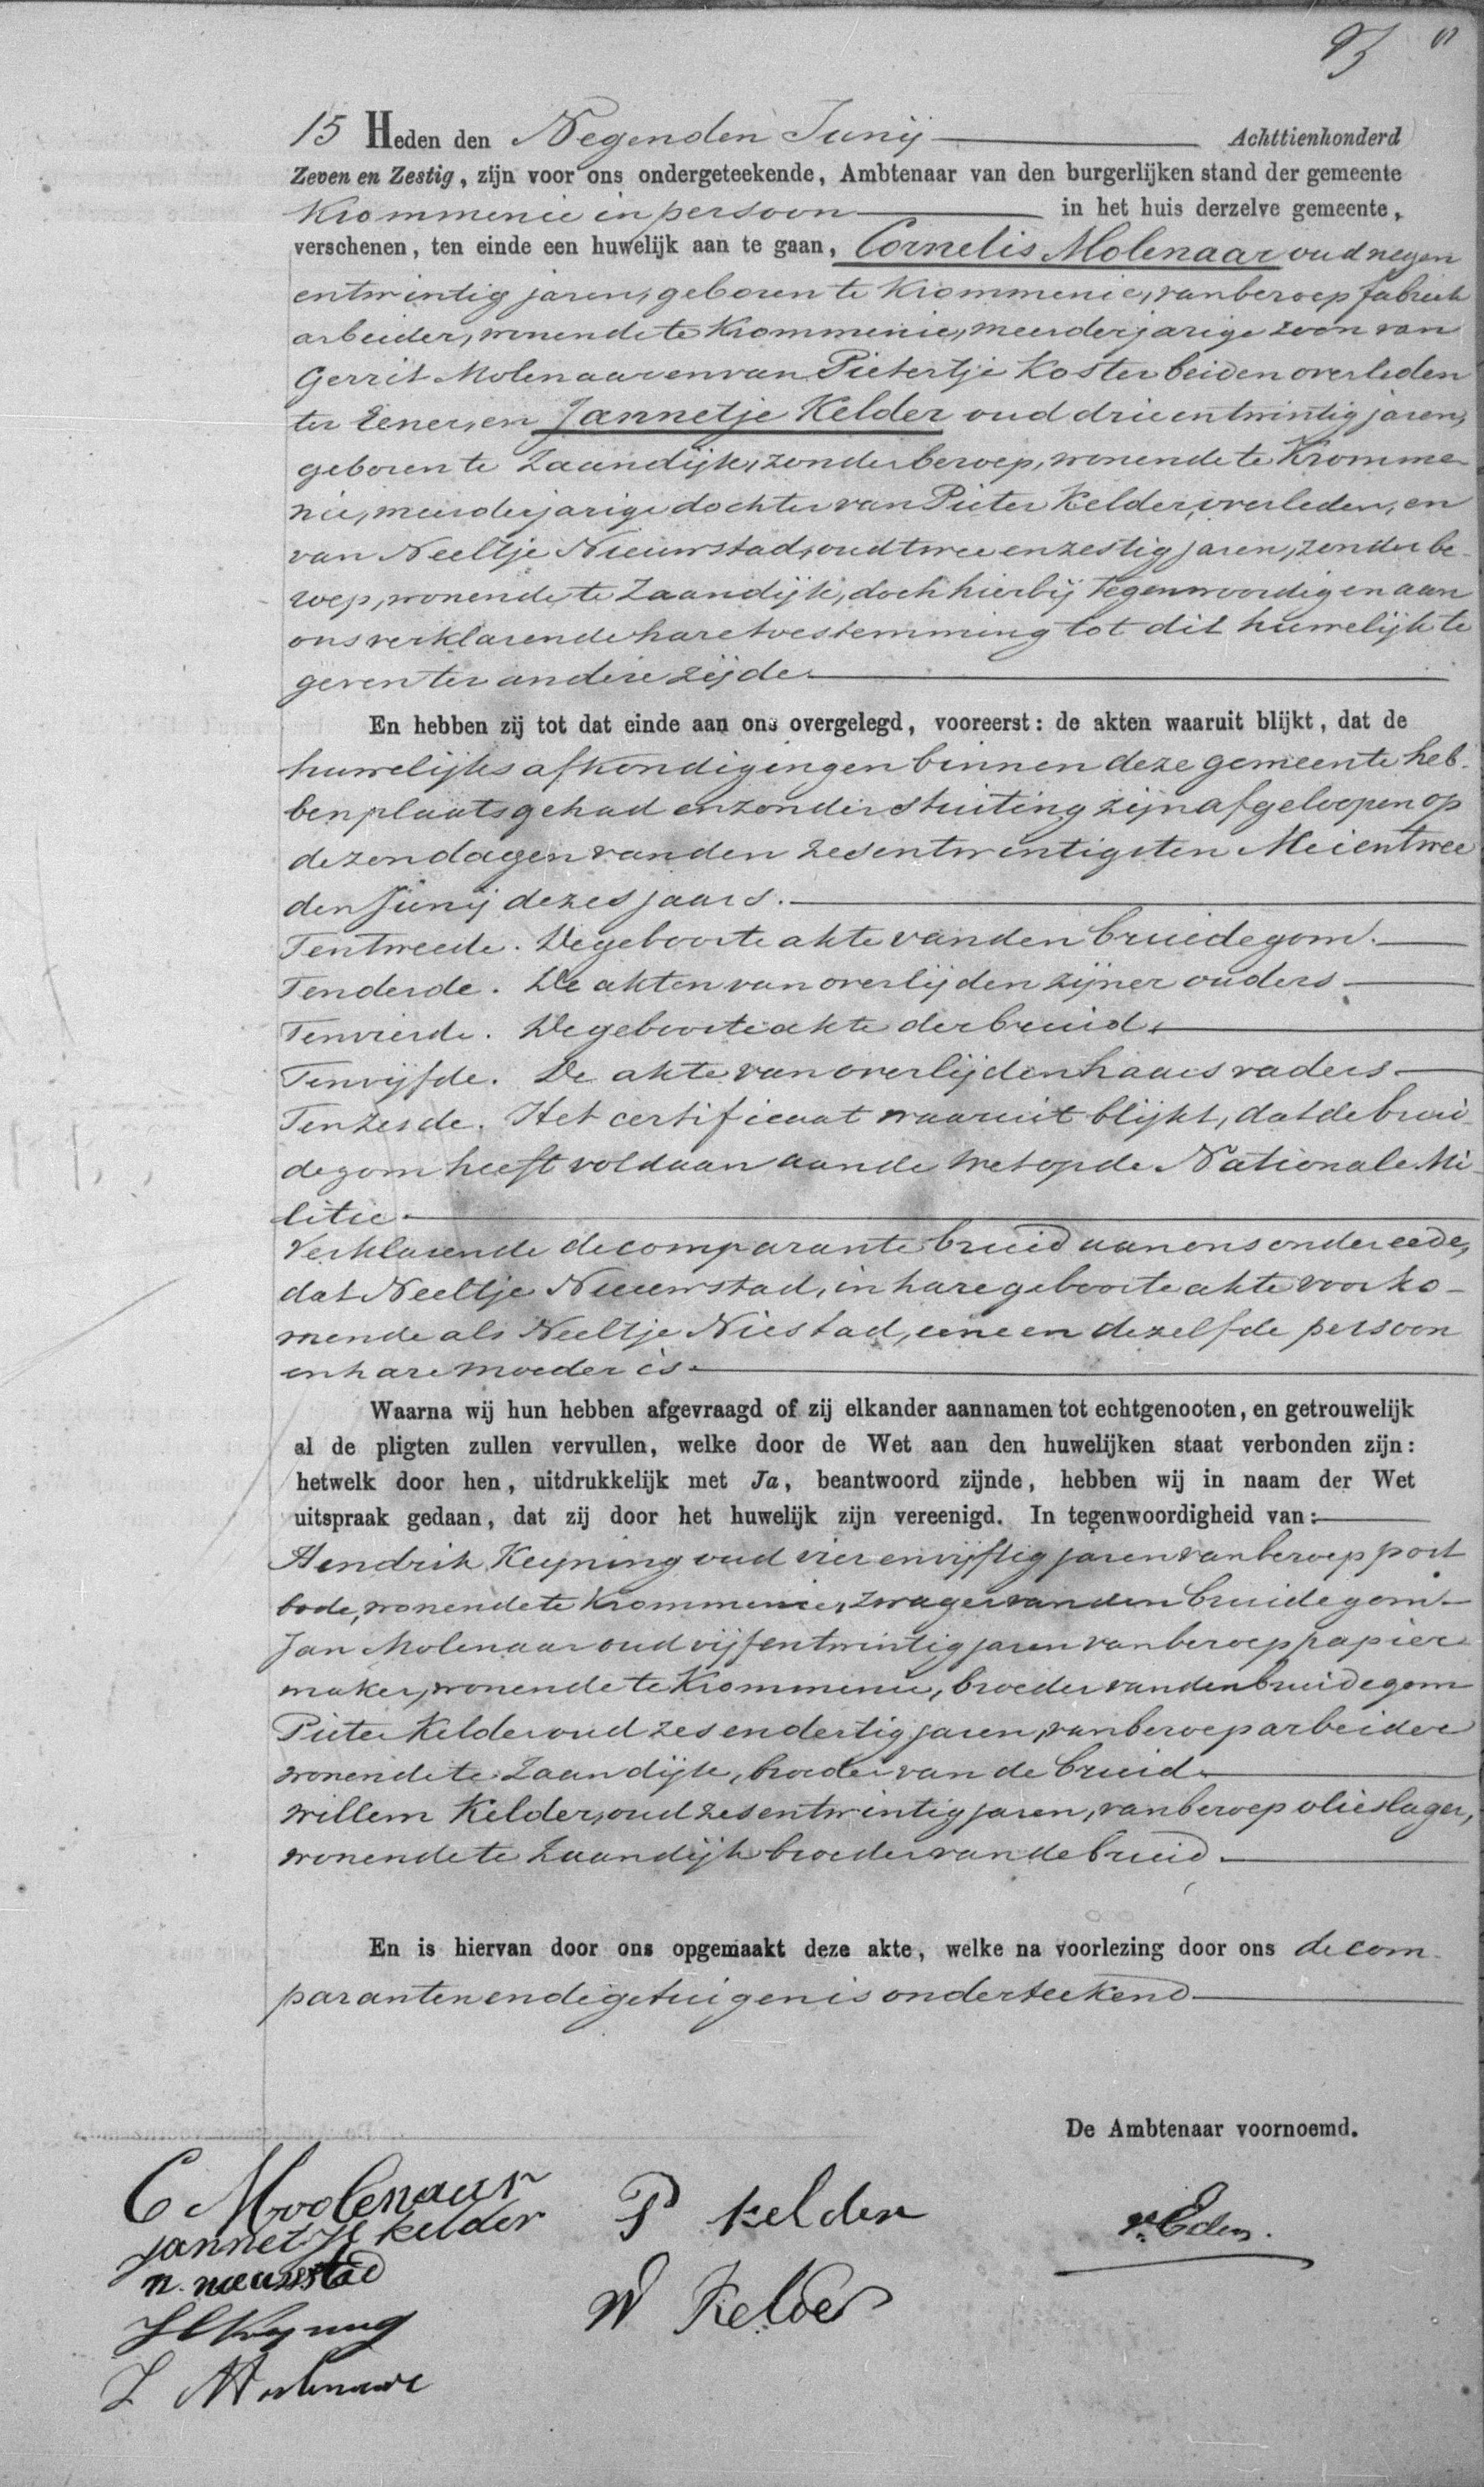 15 Heden den Negenden Junij Achttienhonderd
Zeven en Zestig, zijn voor ons ondergeteekende, Ambtenaar van den burgerlijken stand der gemeente
Krommenie in persoon in het huis derzelve gemeente,
verschenen, ten einde een huwelijk aan te gaan, Cornelis Molenaar oud negen
entwintig jaren, geboren te Krommenie, van beroep fabriek
arbeider, wonende te Krommenie, meerderjarige zoon van
Gerrit Molenaar en van Pietertje Koster beiden overleden
ter Eener, en Jannetje Kelder oud drieentwintig jaren,
geboren te Zaandijk, zonder beroep, wonende te Kromme
nie, meerderjarige dochter van Pieter Kelder, overleden, en
van Neeltje Nieuwstad, oud twee en zestig jaren, zonder be-
roep, wonende te Zaandijk, doch hierbij tegenwoordig en aan
ons verklarende hare toestemming tot dit huwelijk te
geven ter andere zijde
En hebben zij tot dat einde aan ons overgelegd, vooreerst: de akten waaruit blijkt, dat de
huwelijks afkondigingen binnen deze gemeente heb-
ben plaats gehad en zonder stuiting zijn afgeloopen op
de zondagen van den zesentwintigsten Mei en twee
den Junij dezes jaars.
Ten tweede. De geboorte akte van den bruidegom.
Ten derde. De akten van overlijden zijner ouders
Ten vierde. De geboorte akte der bruid.
Ten vijfde. De akte van overlijden haars vaders
Ten zesde. Het certificaat waaruit blijkt, dat de brui
degom heeft voldaan aan de wet op de Nationale Mi-
litie.
Verklarende de comparante bruid aan ons onder eede,
dat Neeltje Nieuwstad, in hare geboorte akte voorko-
mende als Neeltje Niestad, eene en dezelfde persoon
en hare moeder is.
Waarna wij hun hebben afgevraagd of zij elkander aannamen tot echtgenooten, en getrouwelijk
al de pligten zullen vervullen, welke door de Wet aan den huwelijken staat verbonden zijn:
hetwelk door hen, uitdrukkelijk met Ja, beantwoord zijnde, hebben wij in naam der Wet
uitspraak gedaan, dat zij door het huwelijk zijn vereenigd. In tegenwoordigheid van:
Hendrik Keyning oud vier en vijftig jaren van beroep post
bode, wonende te Krommenie, zwager van den bruidegom
Jan Molenaar oud vijfentwintig jaren van beroep papier
maker, wonende te Krommenie, broeder van den bruidegom
Pieter Kelder oud zes en dertig jaren, van beroep arbeider
wonende te Zaandijk, broeder van de bruid.
Willem Kelder, oud zesentwintig jaren, van beroep olieslager,
wonende te Zaandijk broeder van de bruid.
En is hiervan door ons opgemaakt deze akte, welke na voorlezing door ons de com-
paranten en de getuigen is onderteekend
De Ambtenaar voornoemd.
C Moolenaar
jannetje kelder
P kelder
v. Eden.
n. nieuwstad
W Kelder
H Keyning
J Molenaar